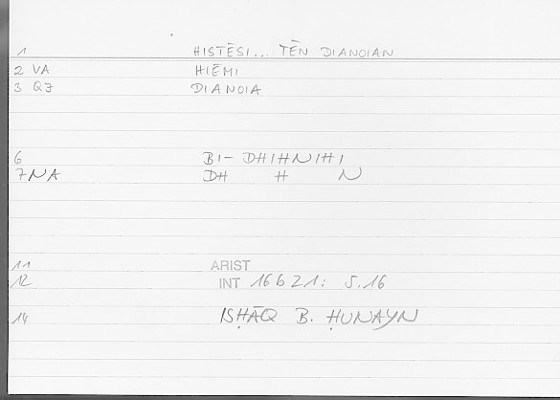 1 HISTĒSI... TĒN DIANOIAN
2 VA HIĒMI
3 QJ DIANOIA
6 BI- DHIHNIHI
7 NA DH H N
11 ARIST
12 INT 16b21: 5.16
14 ISḤĀQ B. ḤUNAYN